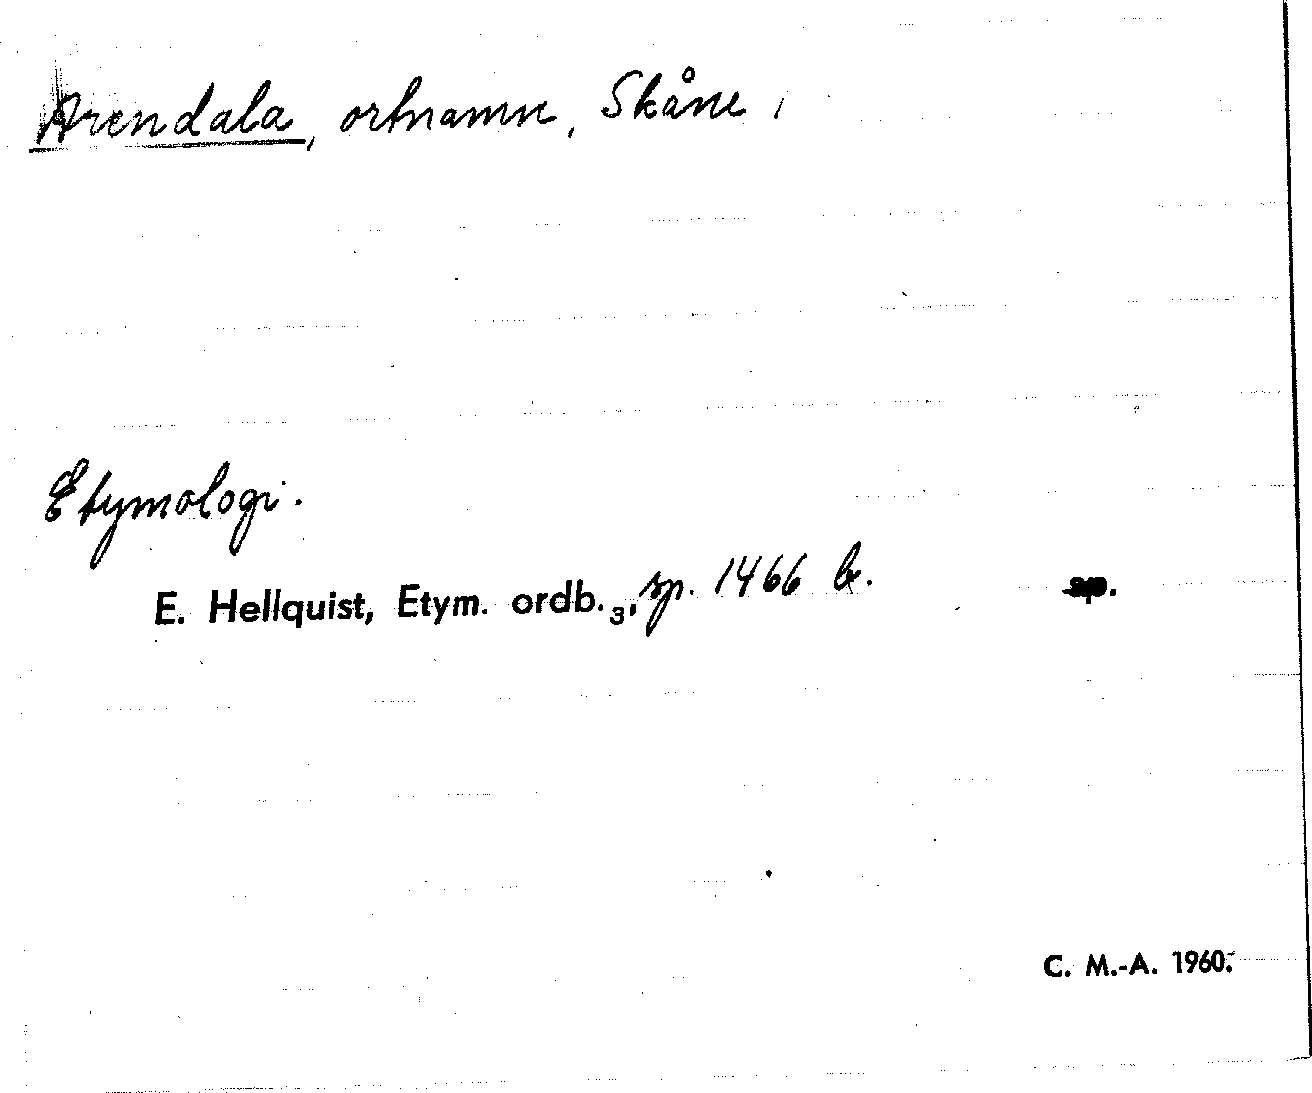 Arendala, ortnamn, Skåne,
Etymologi.
E. Hellquist, Etym. ordb.₃, sp. 1466 b.
C. M.-A. 1960.